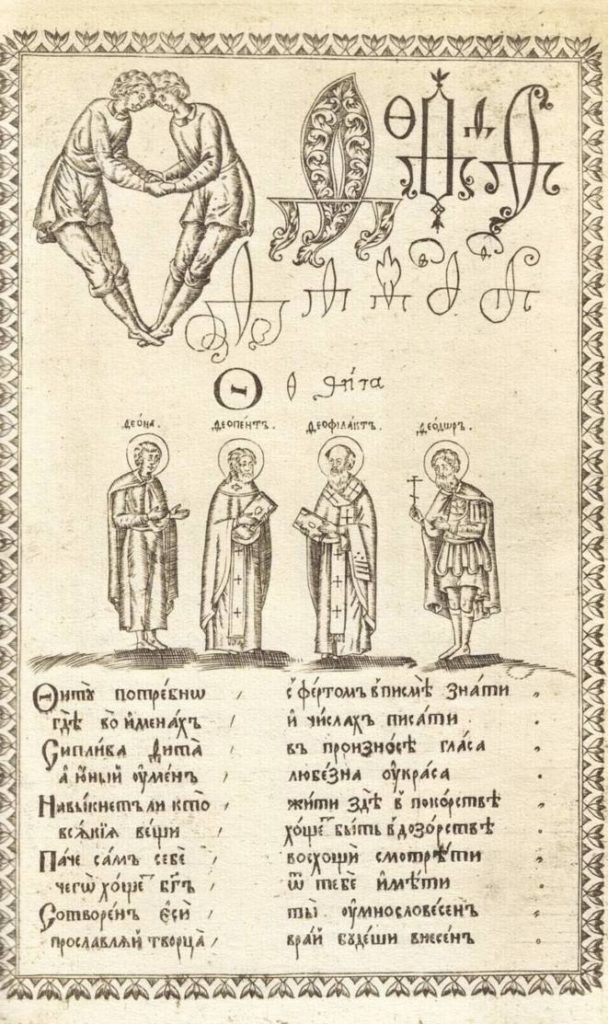 Ѳ ѳ ѳи́та
Ѳео́на. Ѳеопе́нтъ. Ѳеофила́ктъ. Ѳео́дѡръ.
Ѳиту̀ потре́бнѡ , с̾ фе́ртомъ в̾ писмѣ̀ зна́ти
гдѣ̀ во и҆менахъ , и҆ чи́слахъ писа́ти
Сиплива ѳита̀ въ произно́сѣ гла́са
а҆ ю҆́ный оу҆ме́нъ , любе́зна оу҆кра́са
Навы́кнетъ ли кто̀ , жи́ти здѣ̀ в̾ поко́рствѣ
вся́кїя ве́щи , хо́щетъ бы́ть в̾ дозо́рствѣ
Па́че са́мъ себѐ , восхощѝ смотрѣ́ти
чегѡ̀ хо́щетъ бг҃ъ , ѿ тебѐ и҆мѣ́ти
Сотворе́нъ є҆сѝ , ты̀ оу҆мнослове́сенъ
прославля́й творца̀ , в ра́й бу́деши внесе́нъ